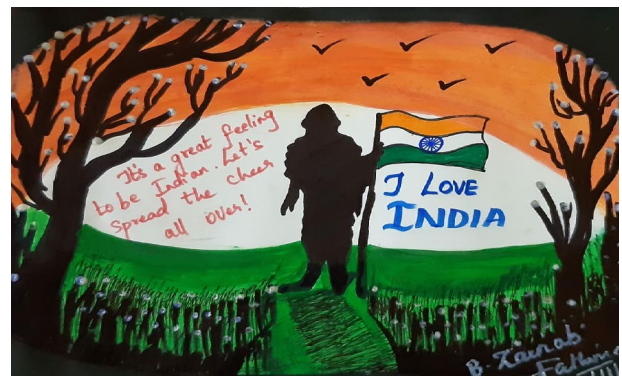 It's a great feeling
to be Indian. Let's
spread the cheer
all over!
I LOVE
INDIA
B. Zainab